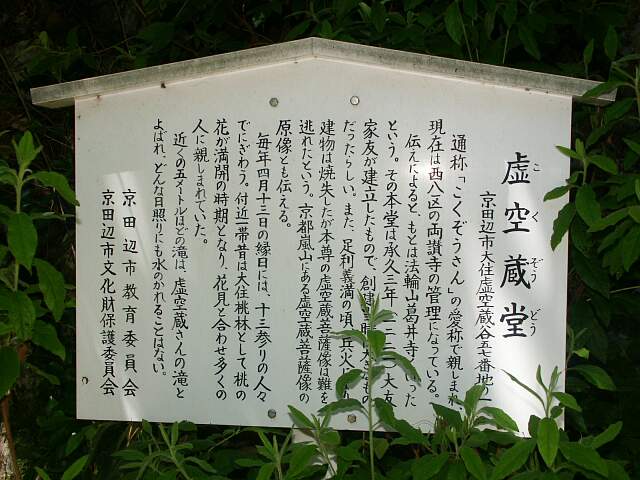 虚空蔵堂
こくぞうどう
京田辺市大住虚空蔵谷五七番地
通称「こくぞうさん」の愛称で親しまれ、
現在は西八区の両讃寺の管理になっている。
伝えによると、もとは法輪山葛井寺といった
という。その本堂は承久三年（一二二一）大友
家友が建立したもので、創建時は大
もの
だったらしい。また、足利義満の頃、兵火に
建物は焼失したが本尊の虚空蔵菩薩像は難を
逃れたという。京都嵐山にある虚空蔵菩薩像の
原像とも伝える。
毎年四月十三日の縁日には、十三参りの人々
でにぎわう。付近一帯昔は大住桃林として桃の
花が満開の時期となり、花見と合わせ多くの
人に親しまれていた。
近くの五メートルほどの滝は、虚空蔵さんの滝と
よばれ、どんな日照りにも水のかれることはない。
京田辺市教育委員会
京田辺市文化財保護委員会